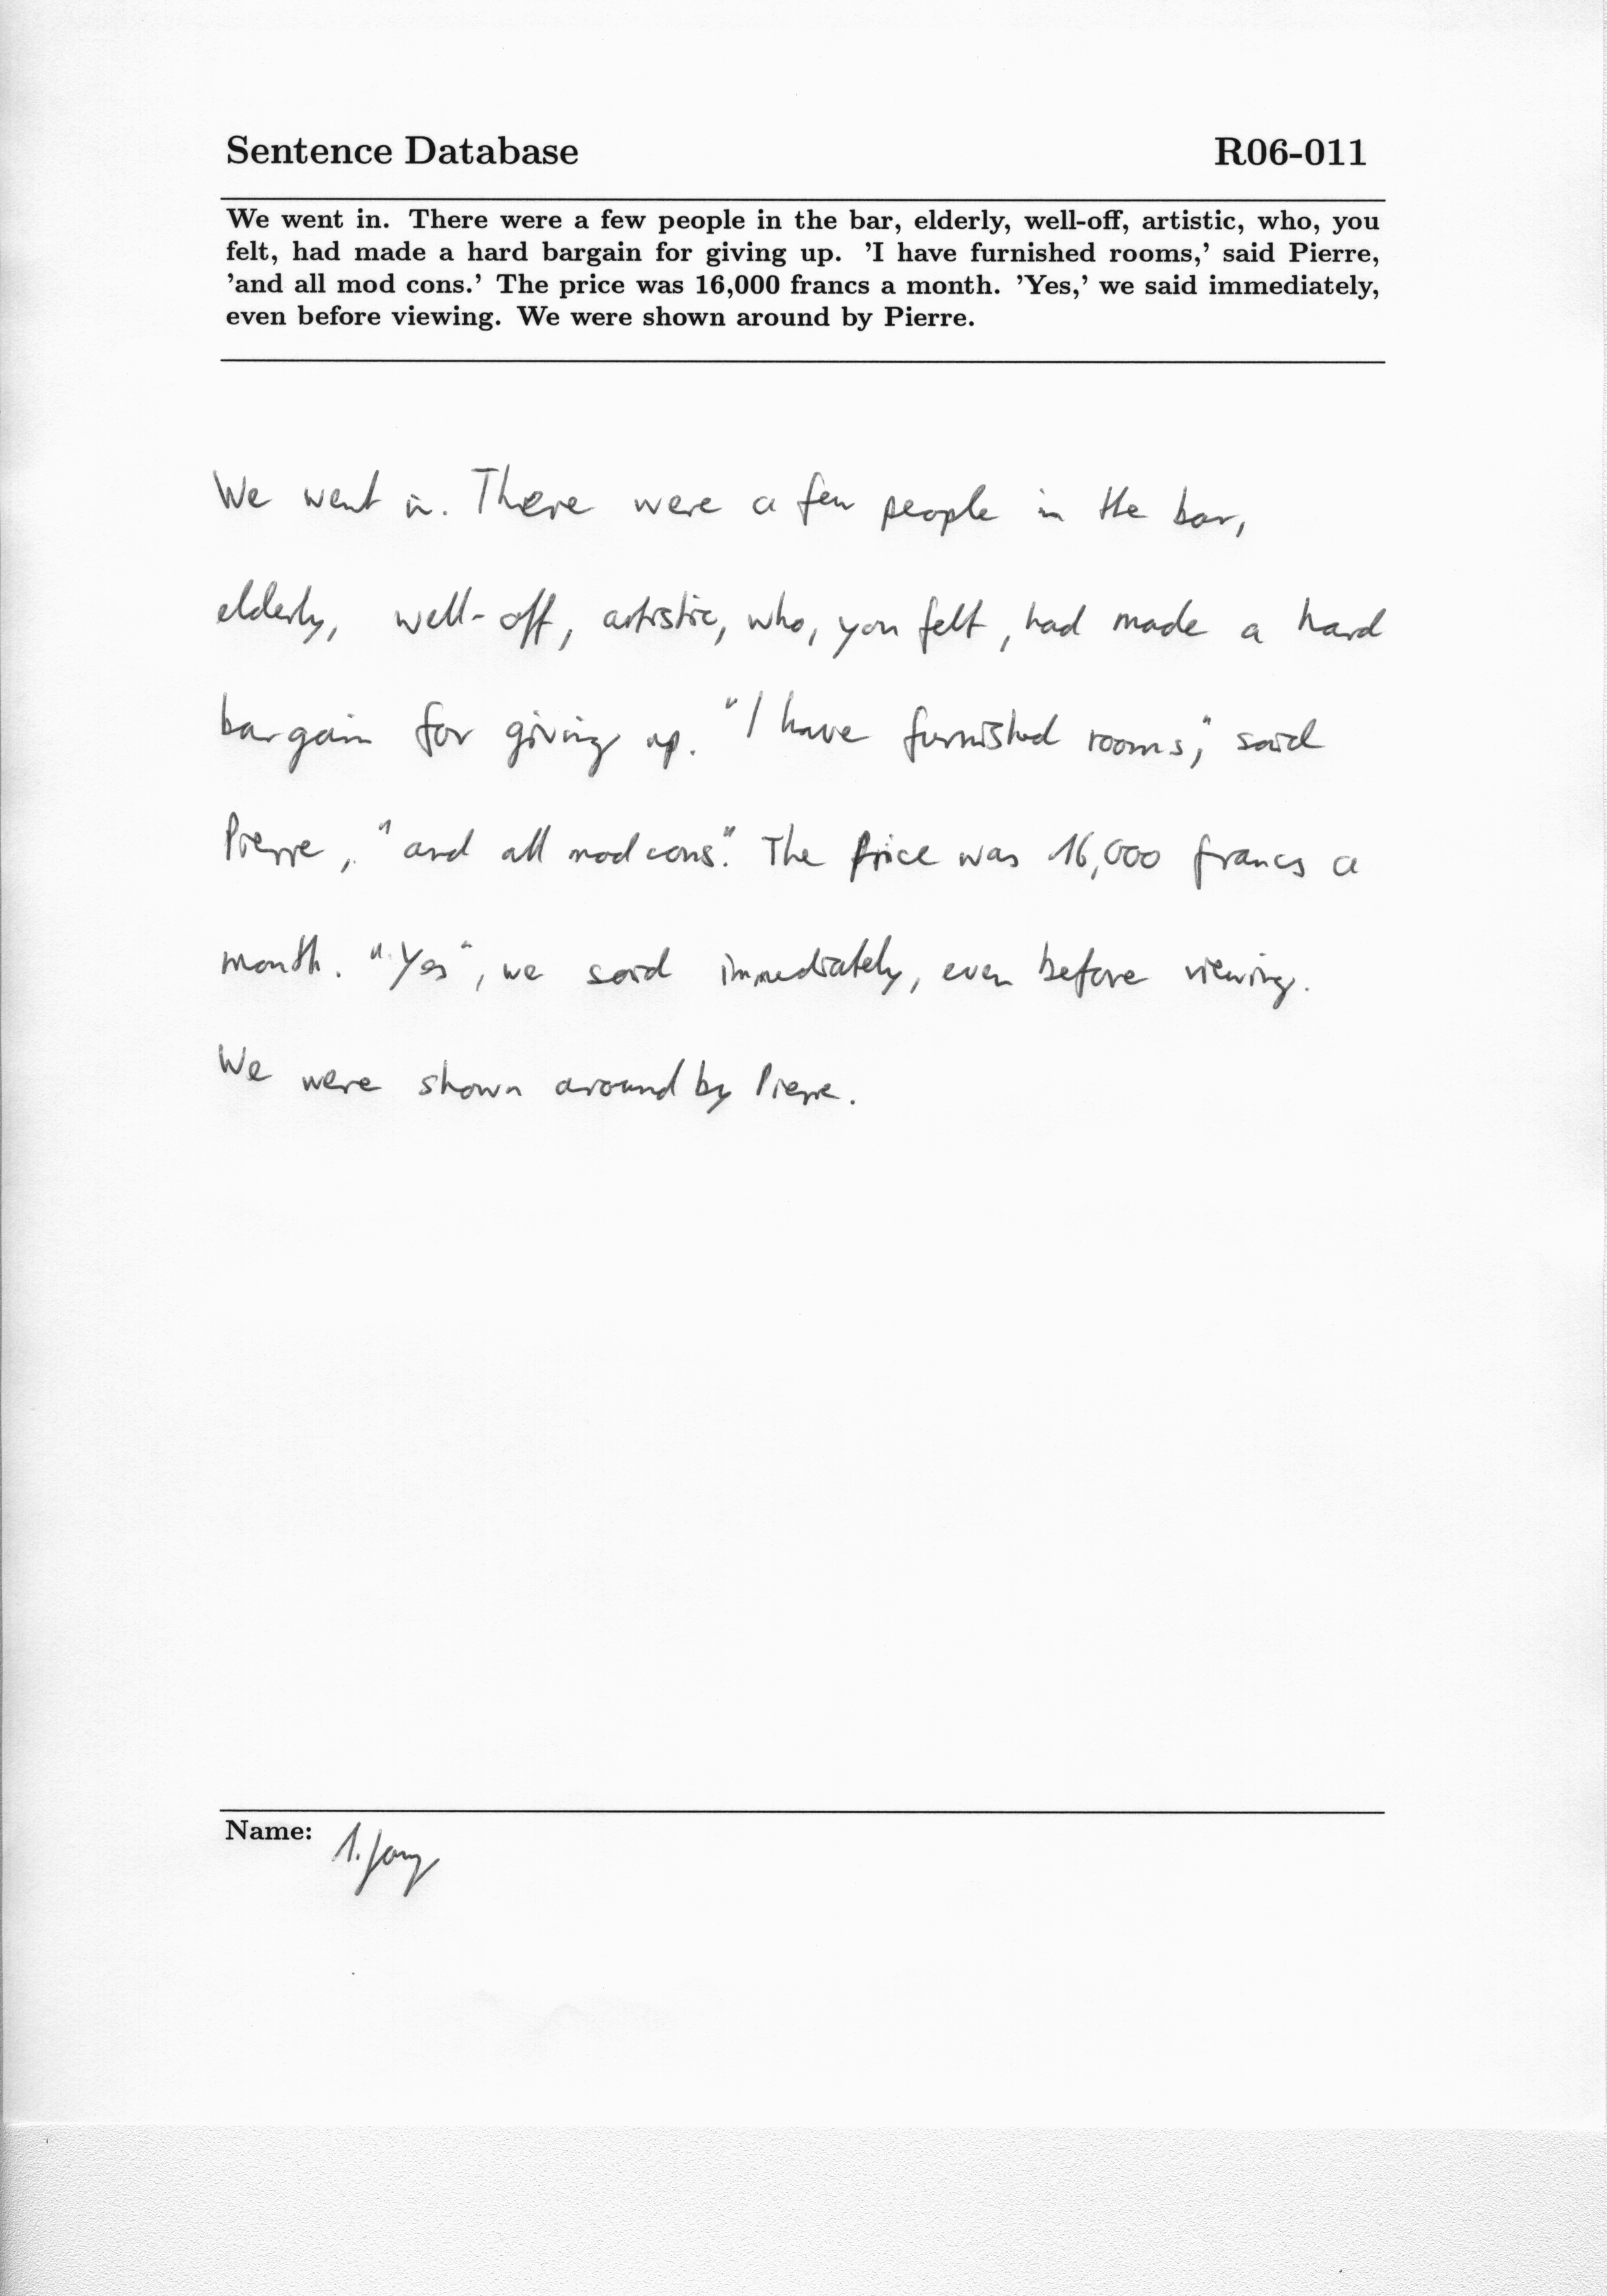 Sentence Database R06-011
We went in. There were a few people in the bar, elderly, well-off, artistic, who, you
felt, had made a hard bargain for giving up. 'I have furnished rooms,' said Pierre,
'and all mod cons.' The price was 16,000 francs a month. 'Yes,' we said immediately,
even before viewing. We were shown around by Pierre.
We went in. There were a few people in the bar,
elderly, well-off, artistic, who, you felt, had made a hard
bargain for giving up. "I have furnished rooms," said
Pierre, "and all mod cons." The price was 16,000 francs a
month. "Yes", we said immediately, even before viewing.
We were shown around by Pierre.
Name: